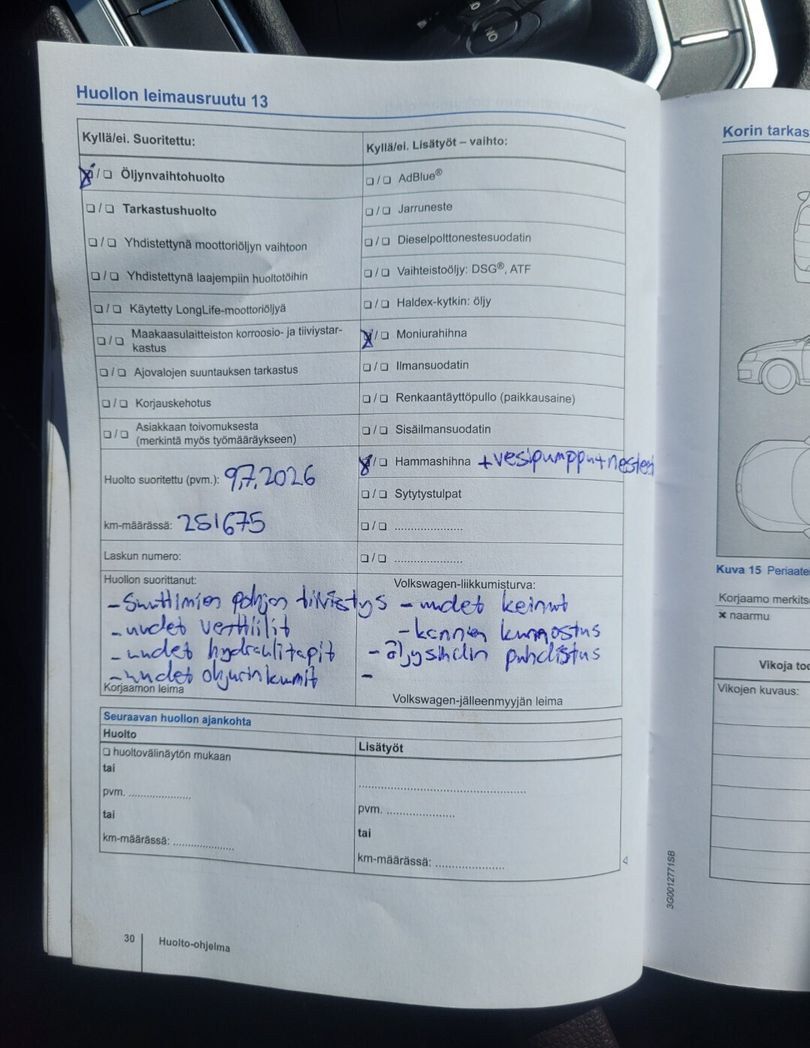 Huollon leimausruutu 13
Kyllä/ei. Suoritettu:
☒ / ❏ Öljynvaihtohuolto
❏ / ❏ Tarkastushuolto
❏ / ❏ Yhdistettynä moottoriöljyn vaihtoon
❏ / ❏ Yhdistettynä laajempiin huoltotöihin
❏ / ❏ Käytetty LongLife-moottoriöljyä
❏ / ❏ Maakaasulaitteiston korroosio- ja tiiviystar-
kastus
❏ / ❏ Ajovalojen suuntauksen tarkastus
❏ / ❏ Korjauskehotus
❏ / ❏ Asiakkaan toivomuksesta
(merkintä myös työmääräykseen)
Huolto suoritettu (pvm.): 9.7.2026
km-määrässä: 251675
Laskun numero:
Kyllä/ei. Lisätyöt – vaihto:
❏ / ❏ AdBlue®
❏ / ❏ Jarruneste
❏ / ❏ Dieselpolttonestesuodatin
❏ / ❏ Vaihteistoöljy: DSG®, ATF
❏ / ❏ Haldex-kytkin: öljy
☒ / ❏ Moniurahihna
❏ / ❏ Ilmansuodatin
❏ / ❏ Renkaantäyttöpullo (paikkausaine)
❏ / ❏ Sisäilmansuodatin
☒ / ❏ Hammashihna +vesipumppu+nesteet
❏ / ❏ Sytytystulpat
❏ / ❏ .....................
❏ / ❏ .....................
Huollon suorittanut:
- Suuttimien pohjan tiivistys
- uudet venttiilit
- uudet hydraulitapit
- uudet ohjurinkumit
Korjaamon leima
Volkswagen-liikkumisturva:
- uudet keinut
- kannen kunnostus
- öljysihdin puhdistus
-
Volkswagen-jälleenmyyjän leima
Seuraavan huollon ajankohta
Huolto
❏ huoltovälinäytön mukaan
tai
pvm. ...................
tai
km-määrässä: ...................
Lisätyöt
....................................................
pvm. .....................
tai
km-määrässä: .....................
30 Huolto-ohjelma
3G0012771SB
Korin tarkas
Kuva 15 Periaate
Korjaamo merkits
✖ naarmu
Vikoja too
Vikojen kuvaus: